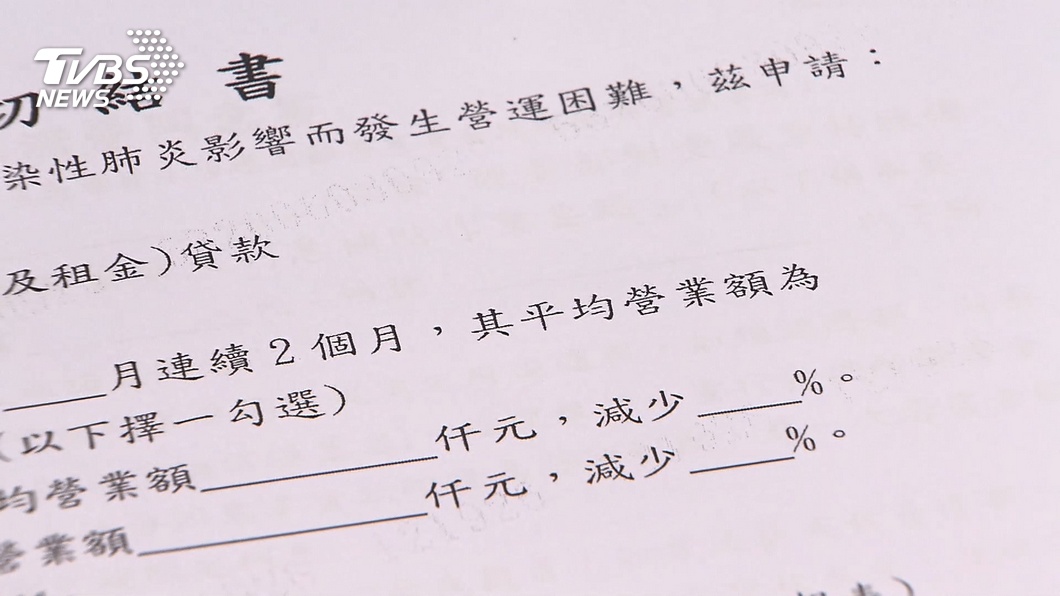 TVBS
NEWS
切結書
染性肺炎影響而發生營運困難，茲申請：
及租金)貸款
____月連續2個月，其平均營業額為
(以下擇一勾選)
均營業額________仟元，減少____%。
營業額________仟元，減少____%。